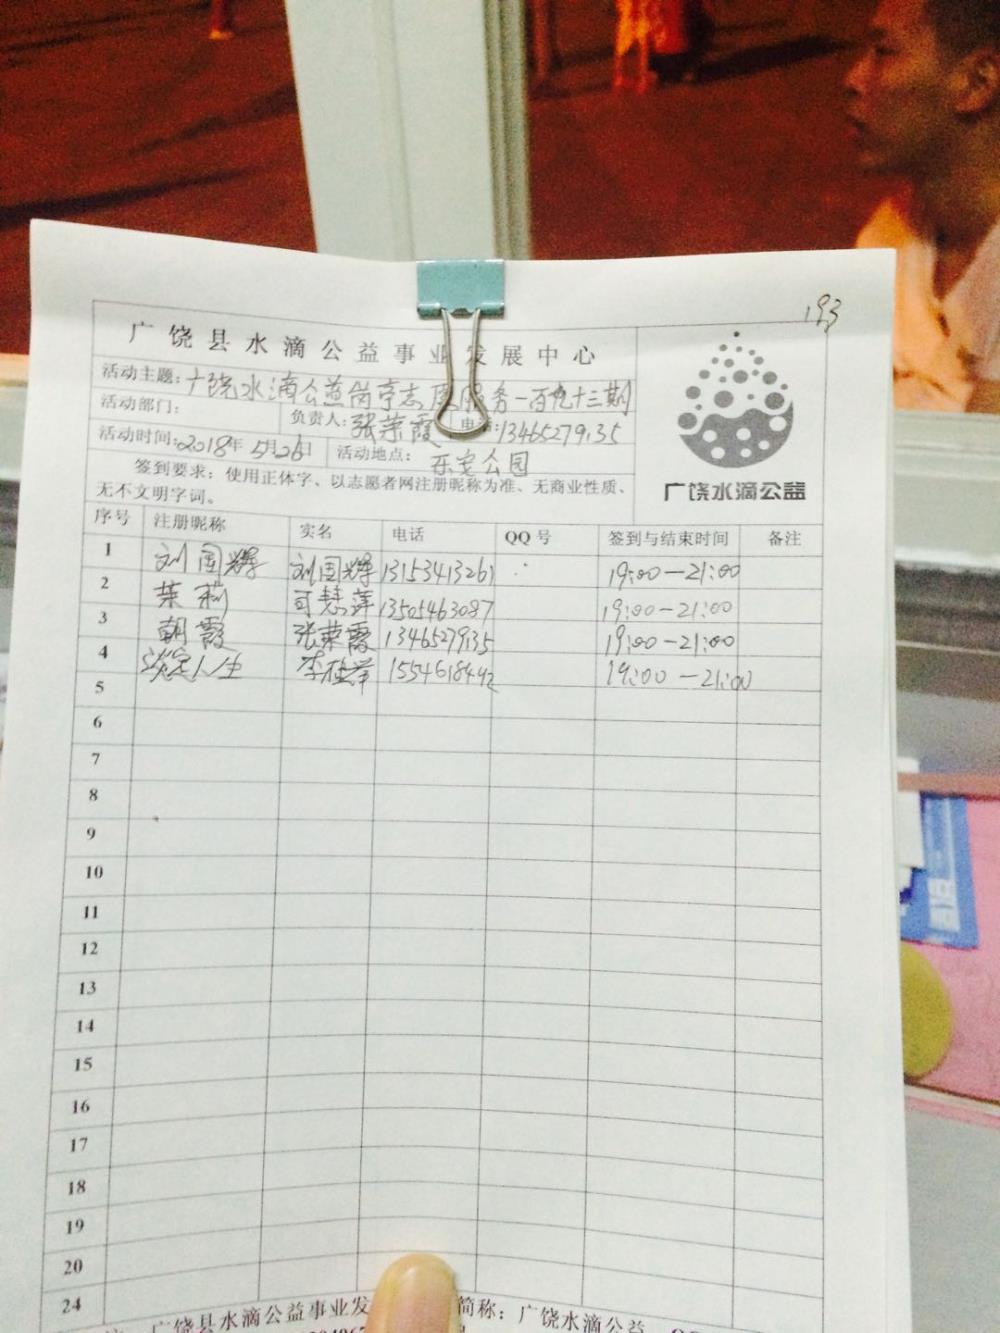 193
广饶县水滴公益事业发展中心
活动主题:广饶水滴公益岗亭志愿服务一百九十三期
活动部门: 负责人:张荣霞 电话:13465279135
活动时间:2018年5月26日 活动地点: 乐安公园
签到要求:使用正体字、以志愿者网注册昵称为准、无商业性质、
无不文明字词。
广饶水滴公益
序号 注册昵称 实名 电话 QQ号 签到与结束时间 备注
1 刘国辉 刘国辉 13153413261 19:00—21:00
2 茉莉 可慧萍 13505463087 19:00—21:00
3 朝霞 张荣霞 13465279135 19:00—21:00
4 淡定人生 李 15546184 19:00—21:00
5
6
7
8
9
10
11
12
13
14
15
16
17
18
19
20
24
广饶县水滴公益事业发 简称:广饶水滴公益